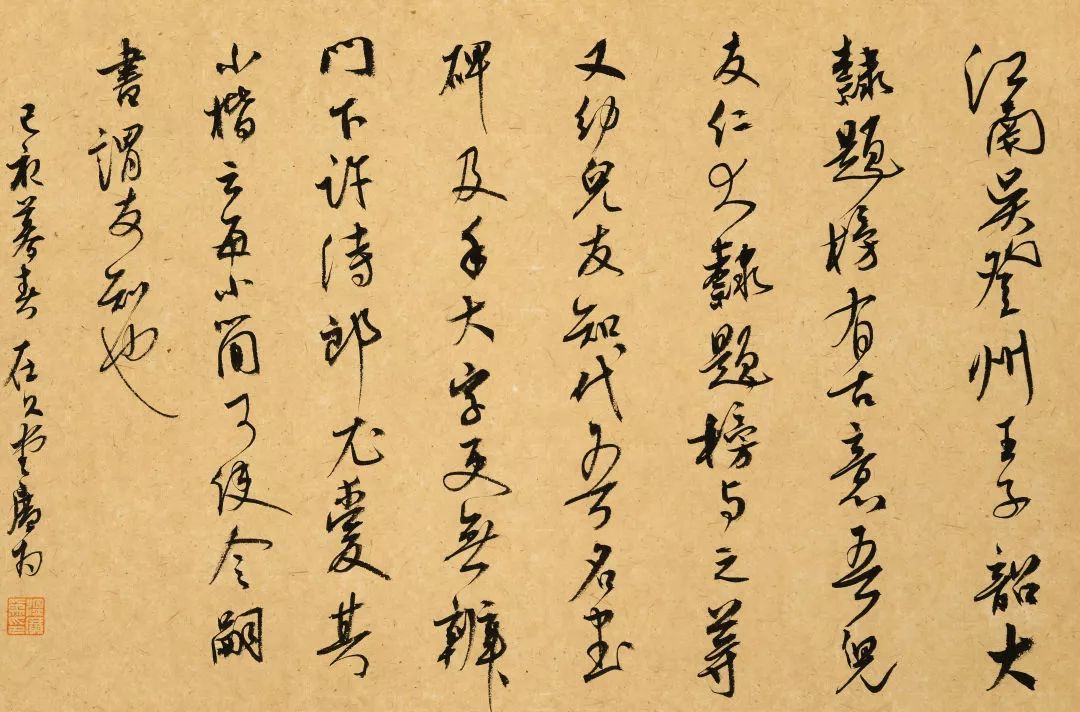 江南吳登州王子韶大
隸題榜有古意吾兒
友仁大隸題榜与之等
又幼兒友知代吾名書
碑及手大字更無辨
門下許侍郎尤愛其
小楷云每小簡可使令嗣
書謂友知也
己亥暮春在久堂